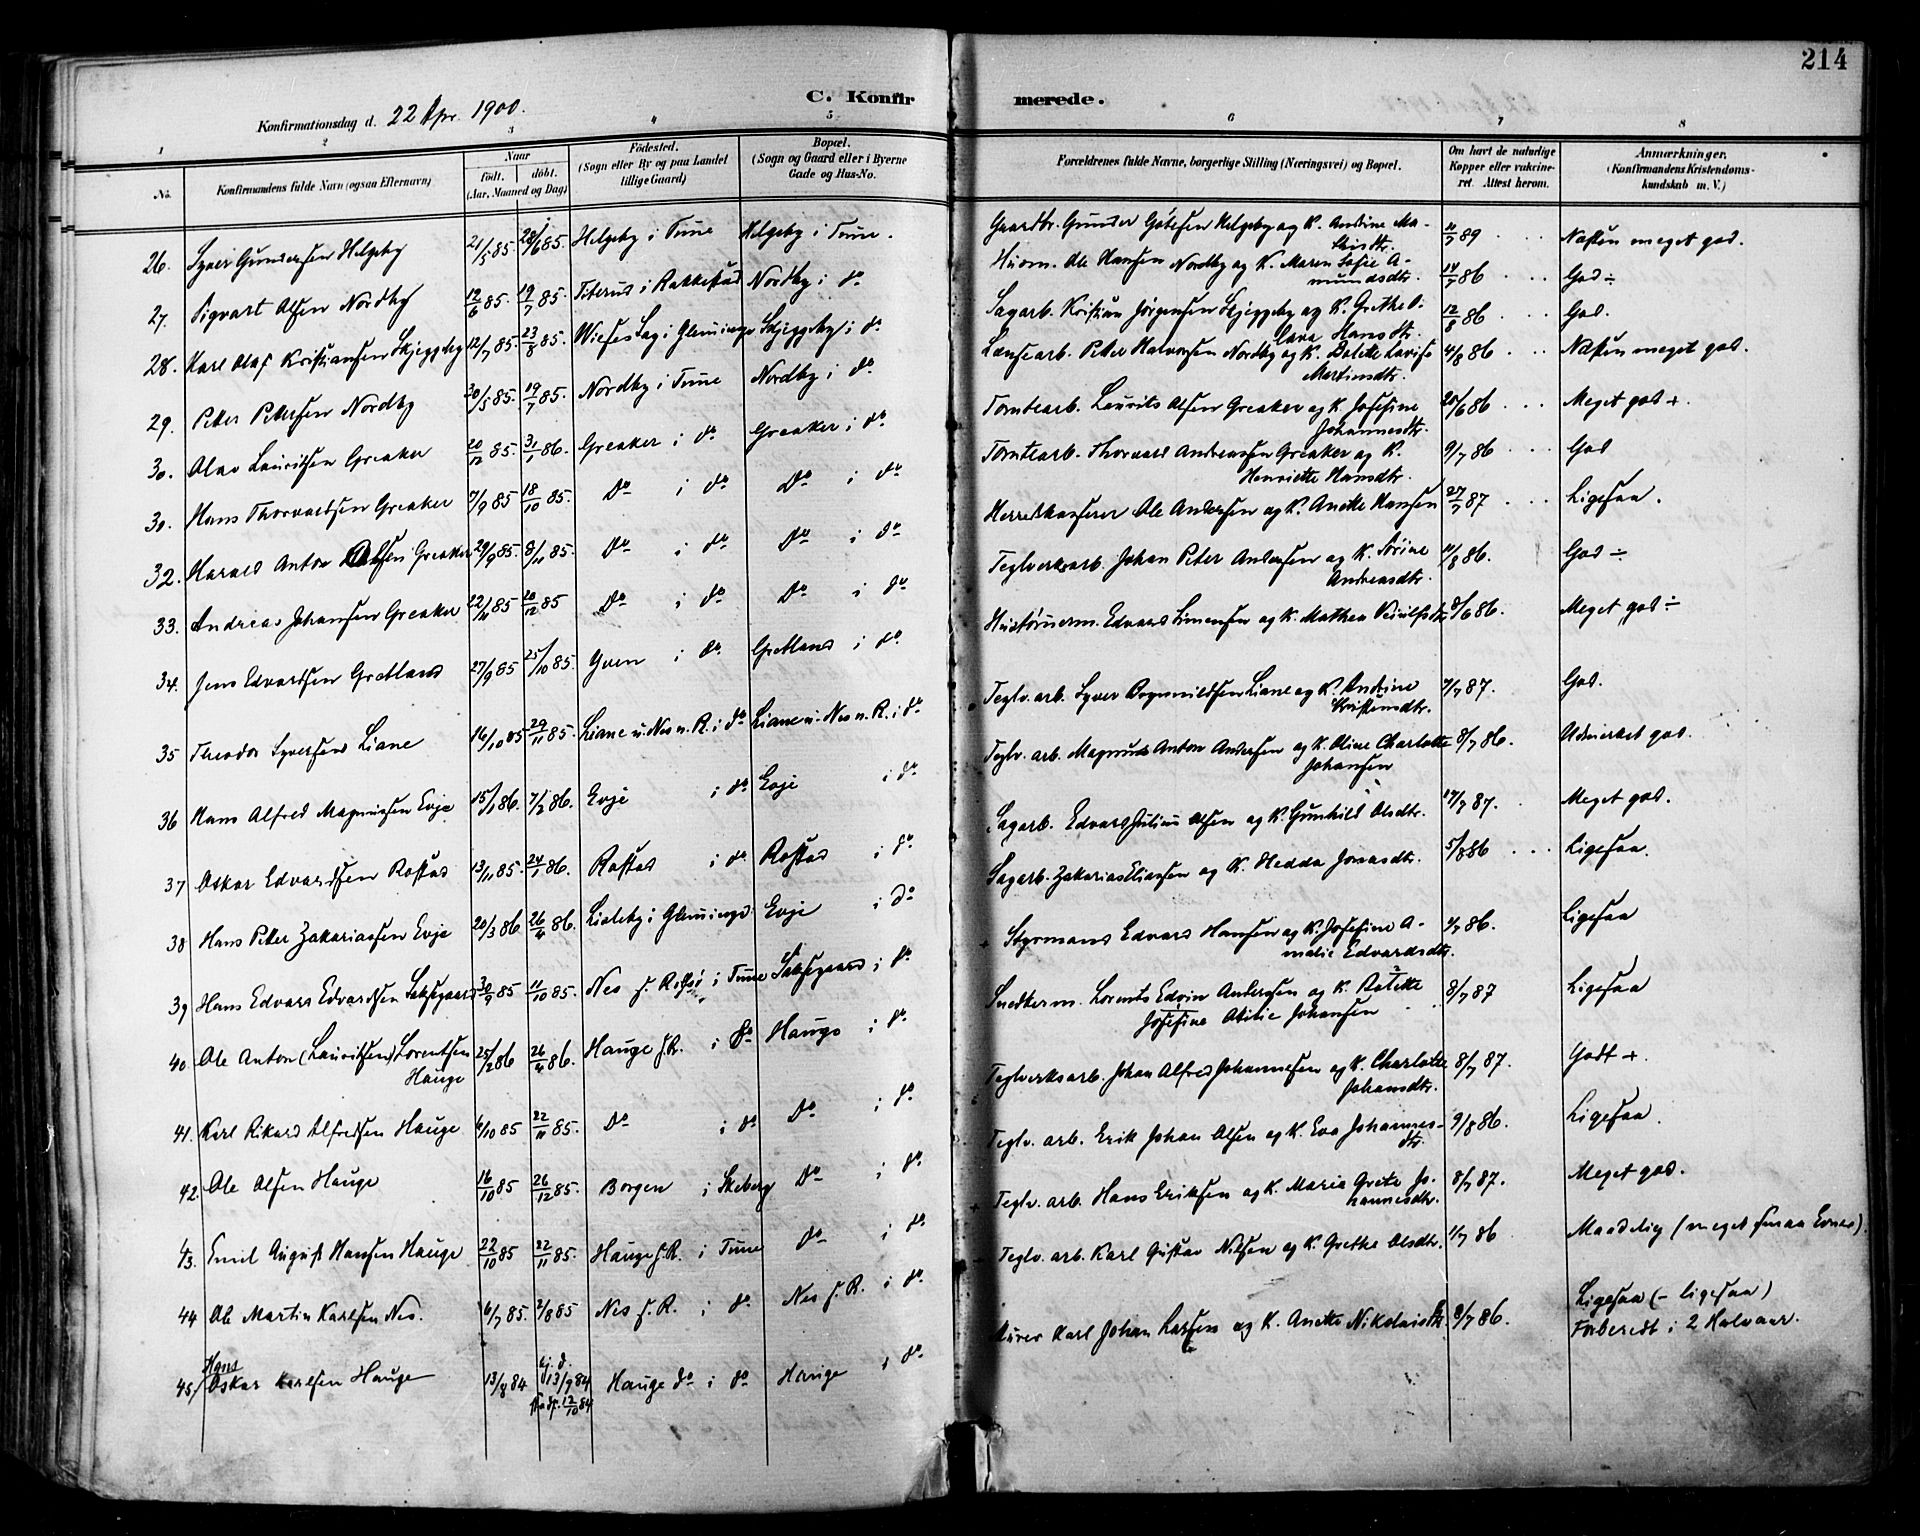 214
C. Konfirmerede.
Konfirmationsdag d. 22 Apr. 1900.
1 2 3 4 5 6 7 8
No. Konfirmandens fulde Navn (ogsaa Efternavn) Naar födt. döbt. (Aar, Maaned og Dag) Födested. (Sogn eller By og paa Landet tillige Gaard) Bopæl. (Sogn og Gaard eller i Byerne Gade og Hus-No. Forældrenes fulde Navne, borgerlige Stilling (Næringsvei) og Bopæl. Om havt de naturlige Kopper eller vakcineret. Attest herom. Anmærkninger. (Konfirmandens Kristendomskundskab m. V.)
26. Syver Gundersen Helgeby 21/5 85 28/6 85 Helgeby i Tune Helgeby i Tune. Gaardbr. Gunder Helgeby og K. Andrine 89 Næsten meget god.
27. Sigvart Olsen Nordby 12/6 85 19/7 85. i Rakkestad Nordby i do Husm. Ole Hansen Nordby og K. Maren Sofie Amundsdtr. 14/7 86 God ÷
28. Karl Olaf Kristiansen Skjeggeby 12/7 85 23/8 85. Wieses Sag i Glemminge Skjeggeby i do Sagarb. Kristian Jörgensen Skjeggeby og K. Grethe Hansdtr. 12/8 86 God.
29. Peter Petersen Nordby 30/5 85. 19/7 85. Nordby i Tune Nordby i do Lensearb. Peter Halvorsen Nordby og K. Dolette Lovise Martinsdtr. 4/8 86 Næsten meget god.
30. Olav Lauritsen Greaker 20/12 85. 31/1 86. Greaker i do Greaker i do Tomtearb. Laurits Olsen Greaker og K. Josefine Johannesdtr. 20/6 86 Meget god +.
30. Hans Thorvaldsen Greaker 7/9 85 18/10 85. Do i do Do i do Tomtearb. Thorvald Andreassen Greaker og K. Henriette Hansdtr. 9/7 86 God
32. Harald Anton Olsen Greaker 29/9 85. 8/11 85. Do i do Do i do Herredskasserer Ole Andersen og K. Anette Hansen 27/7 87 Ligesaa.
33. Andreas Johansen Greaker 22/11 85 20/12 85 Do i do Do i do Teglverksarb. Johan Peter Andersen og K. Sörine Andreasdtr. 11/8 86. God ÷
34. Jens Edvardsen Gretland 27/9 85 25/10 85. Yven i do Gretland i do Hustömerm. Edvard Simensen og K. Mathea 8/6 86. Meget god ÷
35 Theodor Syversen Liane 16/10 85 29/11 85. Liane u. Nes n. R. i do Liane u. Nes n. R. i do Teglv. arb. Syver Liane og K. Andrine Kristensdtr. 7/7 87. God.
36 Hans Alfred Magnussen Evje 15/1 86. 7/2 86. Evje i do Evje i do Teglv. arb. Magnus Anton Andersen og K. Oline Charlotte Johansen 8/7 86. Udmerket god.
37 Oskar Edvardsen Rostad 13/11 85. 24/1 86. Rostad i do Rostad i do Sagarb. Edvard Julius Olsen og K. Gunhild Olsdtr. 17/7 87. Meget god.
38 Hans Peter Zakariassen Evje 20/3 86 26/4 86. Lisleby i Glemminge Evje i do Sagarb. Zakarias Eliassen og K. Hedda Jonasdtr. 5/8 86 Ligesaa.
39 Hans Edvard Edvardsen 30/9 85 11/10 85. Nes s. Rolfsö i Tune i do Styrmand Edvard Hansen og K. Josefine Amalie Edvardsdtr. 7/7 86. Ligesaa
40. Ole Anton (Lauritsen) Lorentsen Hauge 25/2 86 26/4 86. Hauge s. R. i do Hauge i do Snedkerm. Lorents Edvin Andersen og K. Josefine Otilie Johansen 8/7 87 Ligesaa
41. Karl Rikard Alfredsen Hauge 4/10 85 22/11 85. Do i do Do i do Teglverksarb. Johan Alfred Johannesen og K. Charlotte Johansdtr. 8/7 87. Godt +.
42. Ole Olsen Hauge 16/10 85 26/12 85. Borgen i Skeberg Do i do Teglv. arb. Erik Johan Olsen og K. Eva Johannesdtr. 9/8 86. Ligesaa.
43. Emil August Hansen Hauge 22/10 85 22/11 85. Hauge s. R. i Tune do i do Teglv. arb. Hans Eriksen og K. Maria Grete Johannesdtr. 8/7 87. Meget god.
44 Ole Martin Karlsen Nes. 6/7 85. 2/8 85 Nes s. R. i do Nes s. R. i do Teglv. arb. Karl Gustav Nilsen og K. Grethe Olsdtr. 1/7 86 Maadelig (meget smaa Evner).
45 Hans Oskar Karlsen Hauge 13/8 84 hj. d. 13/9 84 stadf. 12/10 84 Hauge do i do Hauge i do Murer Karl Johan Larsen og K. Anette 8/7 86. Ligesaa (- ligesaa)
Forberedt i 2 Halvaar.